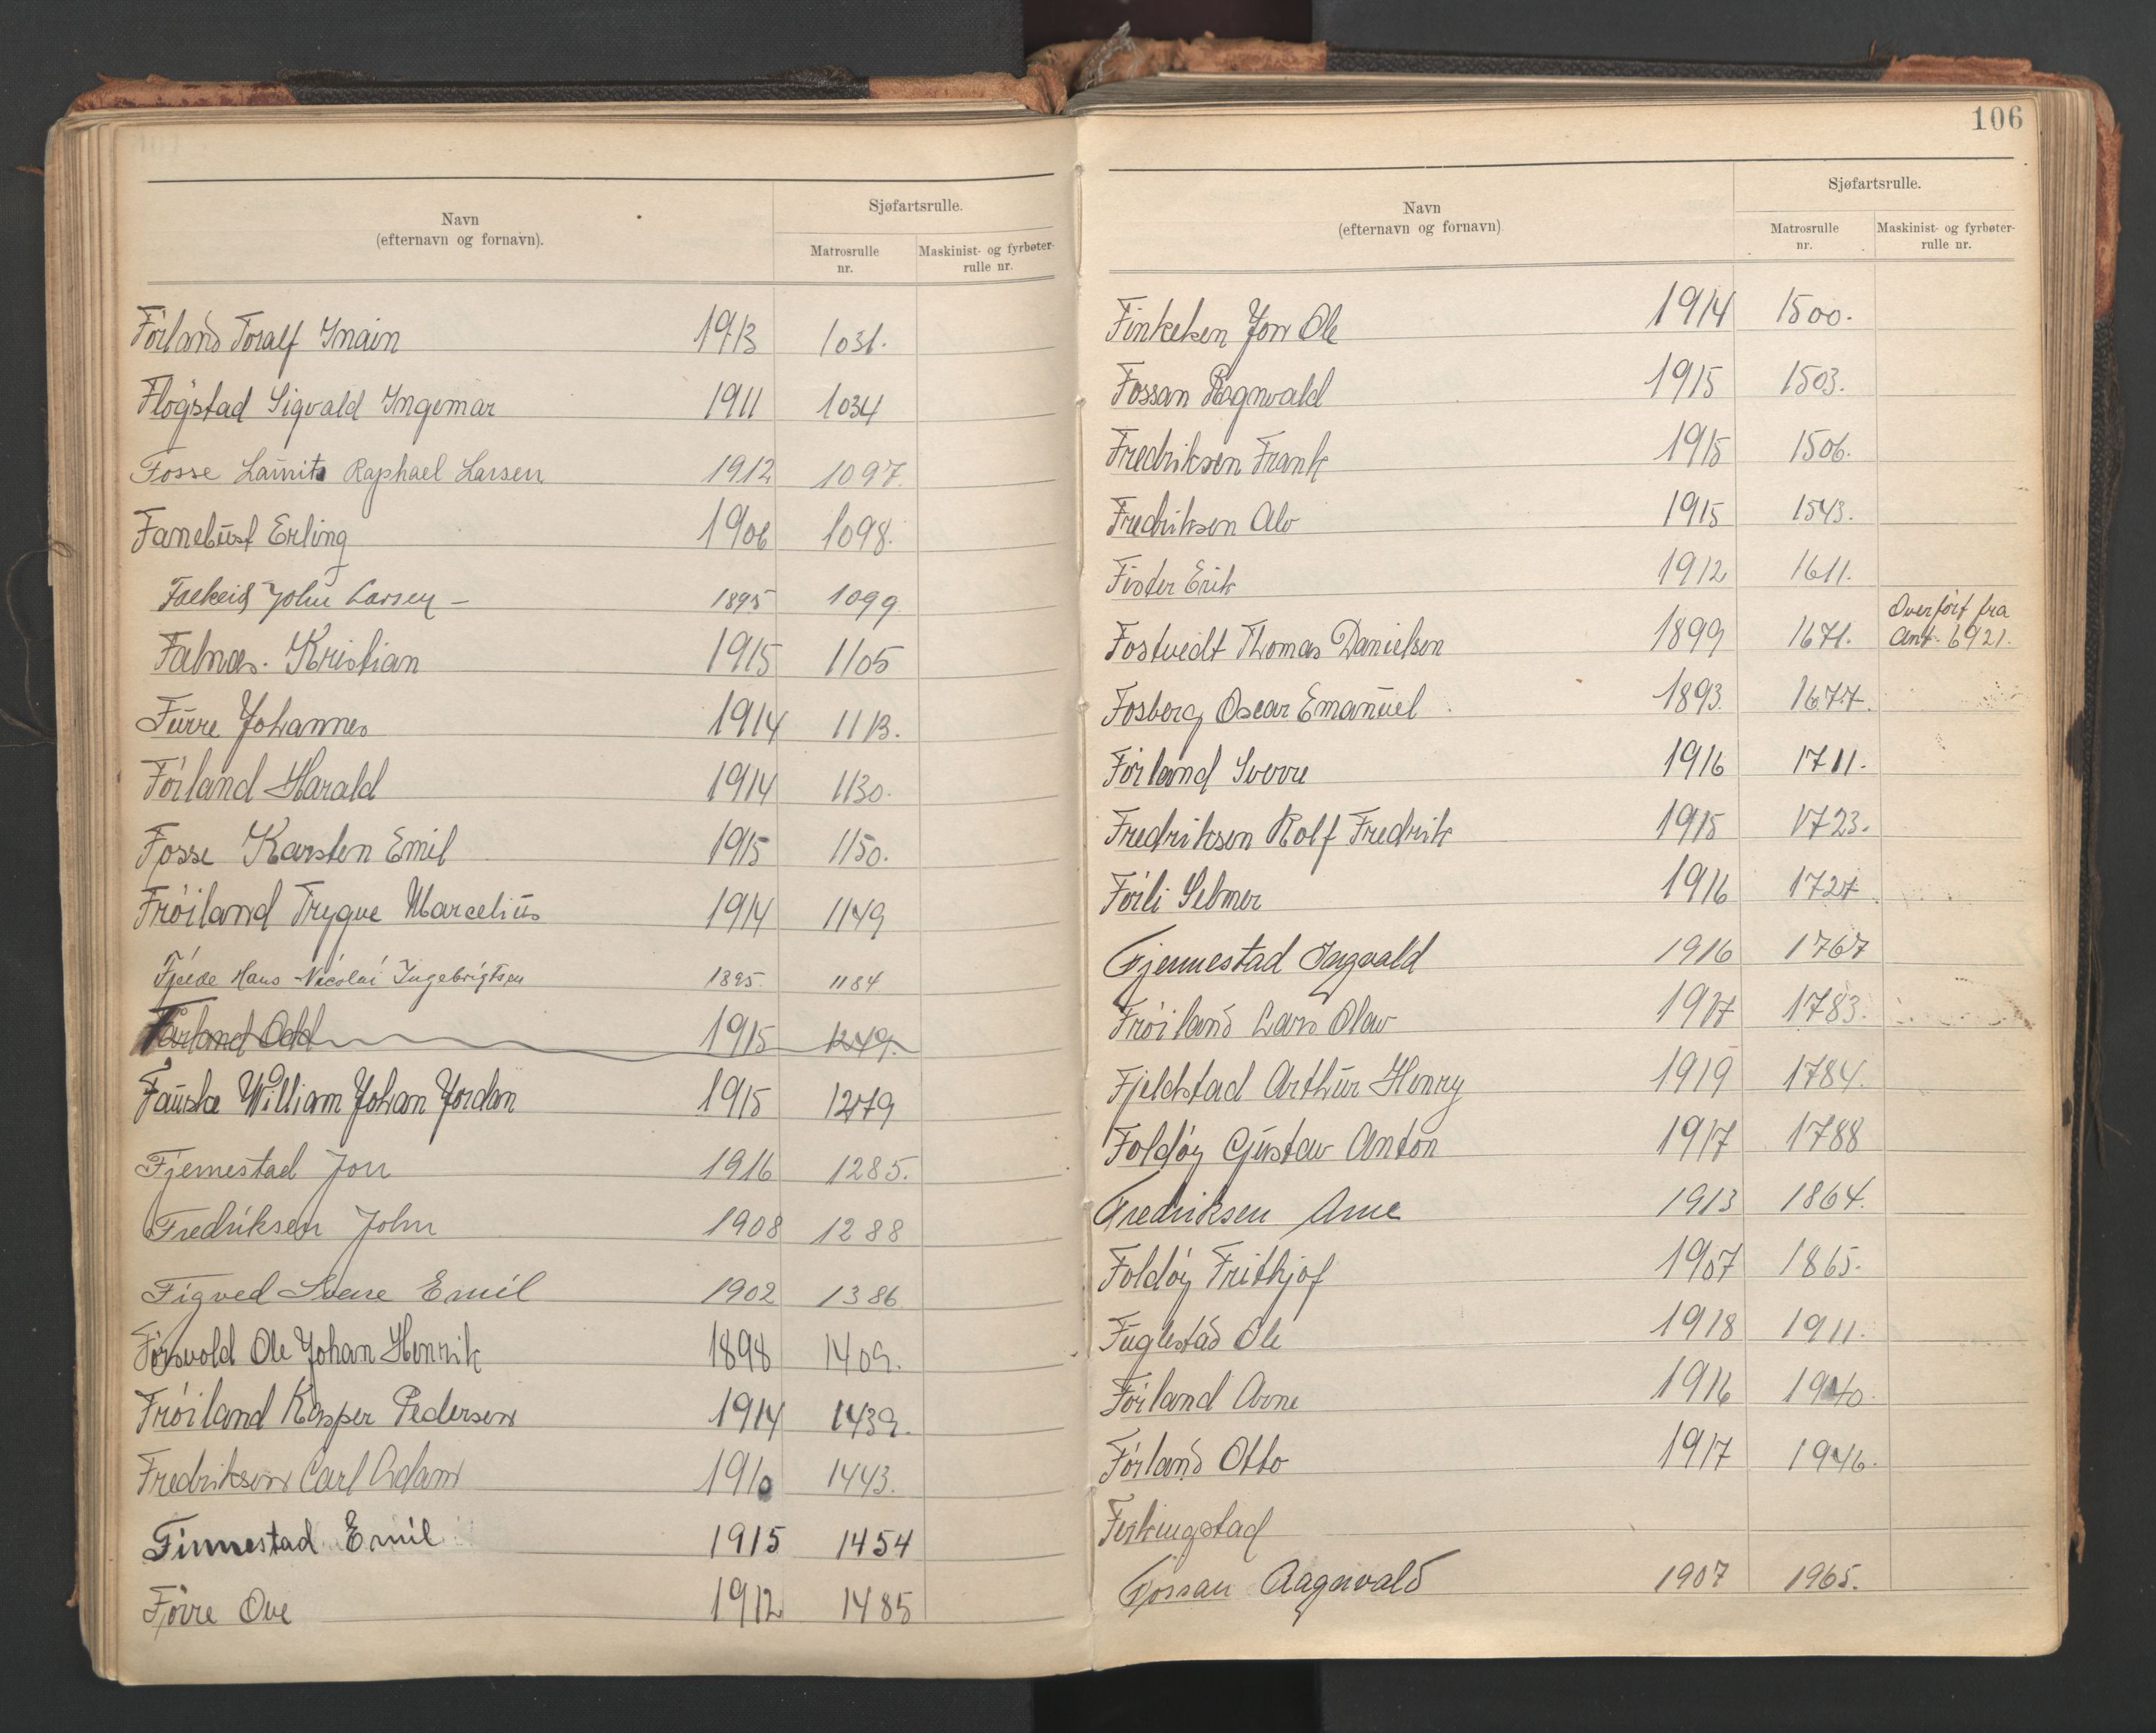 Navn
(efternavn og fornavn).
Sjøfartsrulle.
Matrosrulle
nr.
Maskinist- og fyrbøter-
rulle nr.
Förland Toralf 1913 1031.
Flögstad Sigvald Ingemar 1911 1034
Fosse Raphael Larsen 1912 1097.
Fanebust Erling 1906 1098.
John Larsen - 1895 1099.
Falnes. Kristian 1915 1105
Furre Johannes 1914 1113.
Förland Harald 1914 1130.
Fosse Karsten Emil 1915 1150.
Fröiland Trygve Marcelius 1914 1149
Hans Nicolai Ingebrigtsen 1895. 1184
Førland Odd 1915 1249.
Fauske William Johan Jordan 1915 1279
Fjermestad Jon 1916 1285.
Fredriksen John 1908 1288
Figved Svere Emil 1902 1386
Forsvold Ole Johan Henrik 1898 1409.
Fröiland Kasper Pedersen 1914 1439.
Fredriksen Carl Adam 1910 1443.
Finnestad Emil 1915 1454
Førre Ove 1912 1485
106
Navn
(efternavn og fornavn)
Sjøfartsrulle.
Matrosrulle
nr.
Maskinist- og fyrbøter-
rulle nr.
Finkelsen Jon Ole 1914 1500.
Fossan Ragnvald 1915 1503.
Fredriksen Frank 1915 1506.
Fredriksen Alv 1915 1543.
Fister Erik 1912 1611.
Fostvedt Thomas Danielsen 1899 1671. Overført fra
Ant. 6921.
Fosberg Oscar Emanuel 1893. 1677.
Förland Sverre 1916 1711.
Fredriksen Rolf Fredrik 1915 1723.
Förli Selmer 1916 1727.
Fjermestad Ingvald 1916 1767
Fröiland Lars Olav 1917 1783.
Fjeldstad Arthur Henry 1919 1784.
Foldøy Gustav Anton 1917 1788
Fredriksen Arne 1913 1864.
Foldøy Frithjof 1907 1865.
Fuglestad Ole 1918 1911.
Förland Arne 1916 1940.
Förland Otto 1917 1946.
Ferkingstad
Fossan Ragnvald 1907 1965.